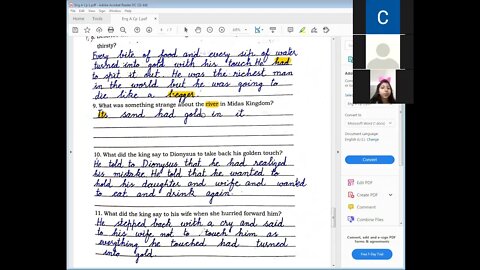 Eng A Cp 1.pdf - Adobe Acrobat Reader DC (32-bit)
thirsty?
Every bite of food and every sip of water
turned into gold with his touch. He had
to spit it out. He was the richest man
in the world but he was going to
die like a beggar.
9. What was something strange about the river in Midas Kingdom?
Its sand had gold in it.
10. What did the king say to Dionysus to take back his golden touch?
He told to Dionysus that he had realized
his mistake. He told that he wanted to
hold his daughter and wife and wanted
to eat and drink again.
11. What did the king say to his wife when she hurried forward him?
He stepped back with a cry and said
to his wife not to touch him as
everything he touched had turned
into gold.
C
Convert to
Microsoft Word (*.docx)
Document Language:
English (U.S.) Change
Convert
Edit PDF
Create PDF
Comment
Combine Files
Convert, edit and e-sign PDF
forms & agreements
Free 7-Day Trial